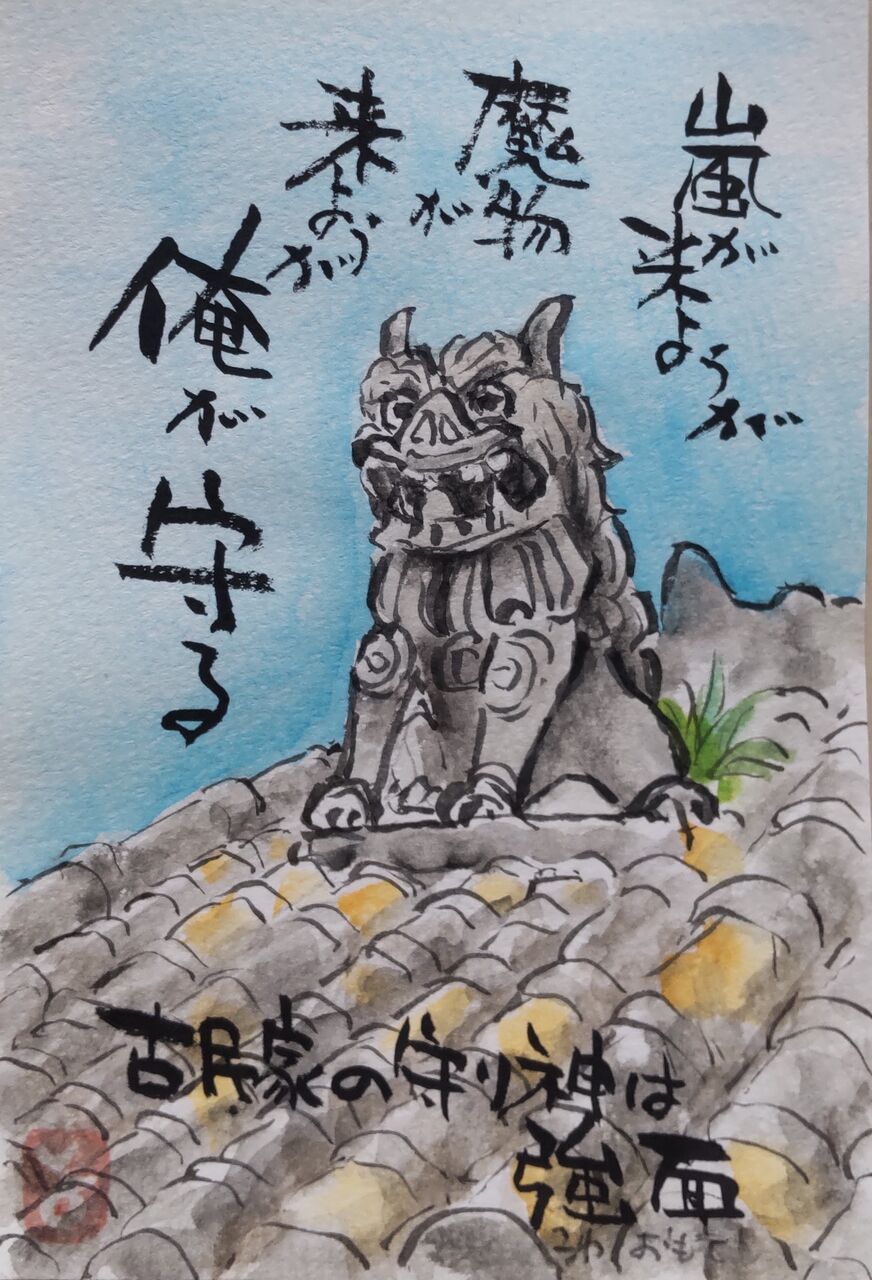 嵐が
来ようが
魔物が
来ようが
俺が
守る
古民家の守り神は
強面
こわおもて